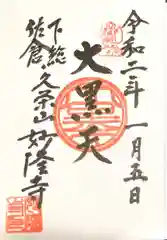 令和二年
一月五日
大黒天
下総
佐倉
久栄山
妙隆寺